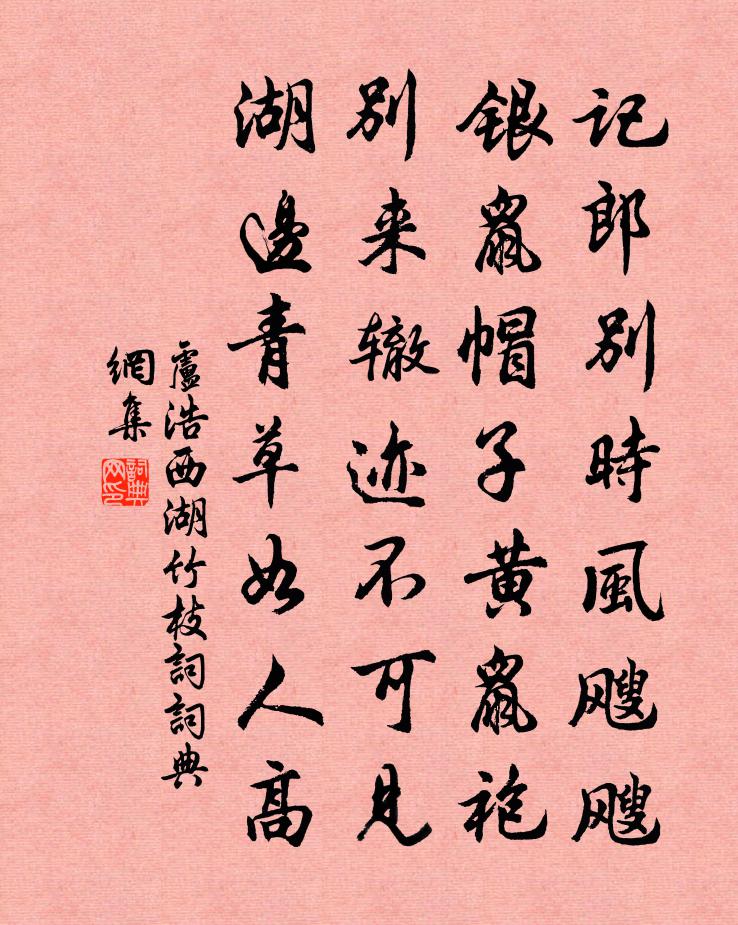 记郎别時風颼颼
银鼠帽子黄鼠袍
别来辙迹不可見
湖邊青草如人高
盧浩西湖竹枝詞詞典
網集
詞典
网印